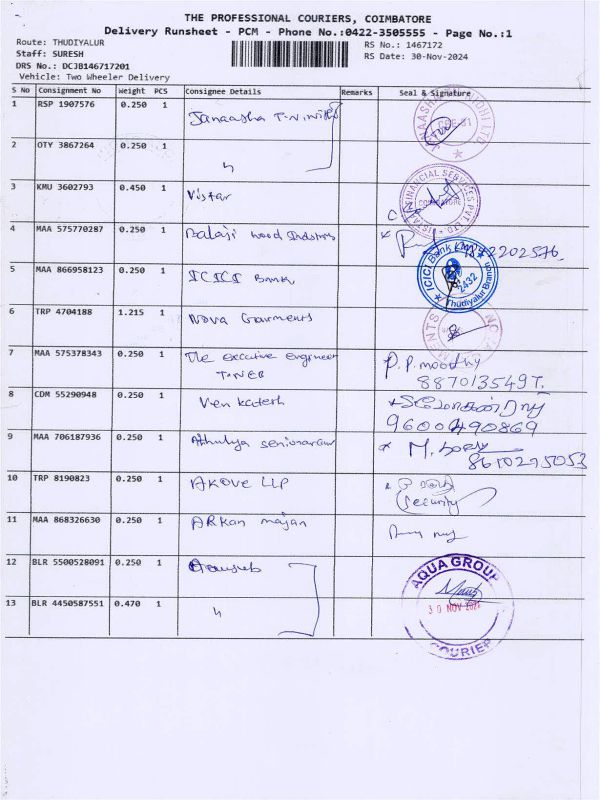 THE PROFESSIONAL COURIERS, COIMBATORE
Delivery Runsheet - PCM - Phone No.:0422-3505555 - Page No.:1
Route: THUDIYALUR
Staff: SURESH
DRS No.: DCJB146717201
Vehicle: Two Wheeler Delivery
RS No.: 1467172
RS Date: 30-Nov-2024
S No Consignment No Weight PCS Consignee Details Remarks Seal & Signature
1 RSP 1907576 0.250 1 Janaasha T.N.
2 OTY 3867264 0.250 1 "
3 KMU 3602793 0.450 1 Vistar
VISTAAR FINANCIAL SERVICES PVT LTD
COIMBATORE
4 MAA 575770287 0.250 1 Balaji wood Industries
5 MAA 866958123 0.250 1 ICICI Bank
ICICI Bank Ltd.
2432
Thudiyalur Branch
6 TRP 4704188 1.215 1 Nova Garments
7 MAA 575378343 0.250 1 The executive engineer
TNEB
P.P. moorthy
8870135497.
8 CDM 55290948 0.250 1 Venkatesh
9600490869
9 MAA 706187936 0.250 1 Athulya
M.
8610295053
10 TRP 8190823 0.250 1 AKOVE LLP
Security
11 MAA 868326630 0.250 1 ARKan majan
12 BLR 5500528091 0.250 1
13 BLR 4450587551 0.470 1 "
AQUA GROUP
30 NOV 2024
COURIER